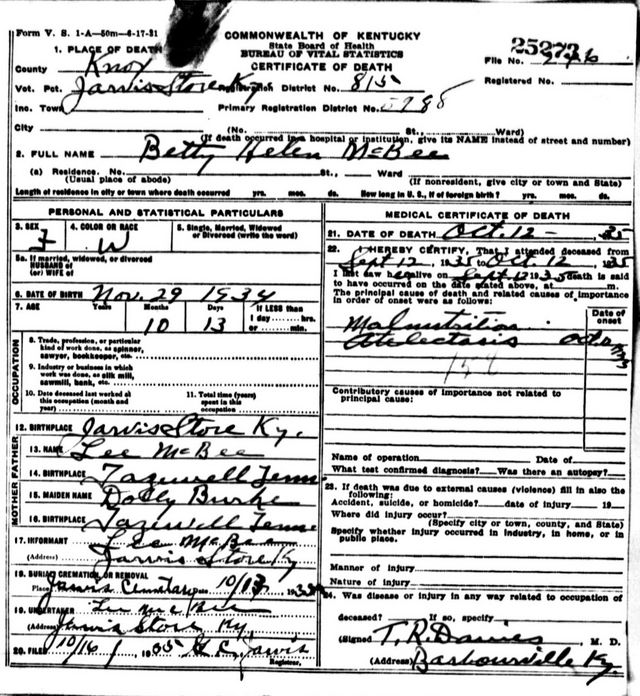 Form V. S. 1-A—50m—6-17-31
COMMONWEALTH OF KENTUCKY
State Board of Health
BUREAU OF VITAL STATISTICS
CERTIFICATE OF DEATH
1. PLACE OF DEATH
County Knox
Vot. Pct. Jarvis Store Ky
Registration District No. 815
Inc. Town
Primary Registration District No.
25273
File No.
Registered No.
City (No. St., Ward)
(If death occurred in a hospital or institution, give its NAME instead of street and number)
2. FULL NAME Betty Helen McBee
(a) Residence. No. St., Ward
(Usual place of abode) (If nonresident, give city or town and State)
Length of residence in city or town where death occurred yrs. mos. ds. How long in U. S., if of foreign birth? yrs. mos. ds.
PERSONAL AND STATISTICAL PARTICULARS
3. SEX F
4. COLOR OR RACE W
5. Single, Married, Widowed or Divorced (write the word)
5a. If married, widowed, or divorced
HUSBAND of
(or) WIFE of
6. DATE OF BIRTH Nov. 29 1934
7. AGE Years Months Days If LESS than
10 13 1 day hrs.
or min.
OCCUPATION
8. Trade, profession, or particular
kind of work done, as spinner,
sawyer, bookkeeper, etc.
9. Industry or business in which
work was done, as silk mill,
sawmill, bank, etc.
10. Date deceased last worked at
this occupation (month and
year)
11. Total time (years)
spent in this
occupation
12. BIRTHPLACE Jarvis Store Ky.
FATHER
13. NAME Lee McBee
14. BIRTHPLACE Tazewell Tenn
MOTHER
15. MAIDEN NAME Dolly Burke
16. BIRTHPLACE Tazewell Tenn
17. INFORMANT Lee McBee
(Address) Jarvis Store Ky
18. BURIAL CREMATION OR REMOVAL
Place Jarvis Cemetary Date 10/13 1935
19. UNDERTAKER Lee McBee
(Address) Jarvis Store Ky.
20. FILED 10/16 1935 Jarvis
Registrar.
MEDICAL CERTIFICATE OF DEATH
21. DATE OF DEATH Oct. 12 - 35
22. I HEREBY CERTIFY, That I attended deceased from
Sept 12, 1935 to Oct. 12, 1935
I last saw her alive on Sept 12 1935 death is said
to have occurred on the date stated above, at m.
The principal cause of death and related causes of importance
in order of onset were as follows:
Date of onset
Malnutrition
Atelectasis
158
Contributory causes of importance not related to
principal cause:
Name of operation Date of
What test confirmed diagnosis? Was there an autopsy?
23. If death was due to external causes (violence) fill in also the
following:
Accident, suicide, or homicide? date of injury 19
Where did injury occur?
(Specify city or town, county, and State)
Specify whether injury occurred in industry, in home, or in
public place.
Manner of injury
Nature of injury
24. Was disease or injury in any way related to occupation of
deceased? If so, specify
(Signed T. R. Davies M. D.
(Address) Barbourville Ky.